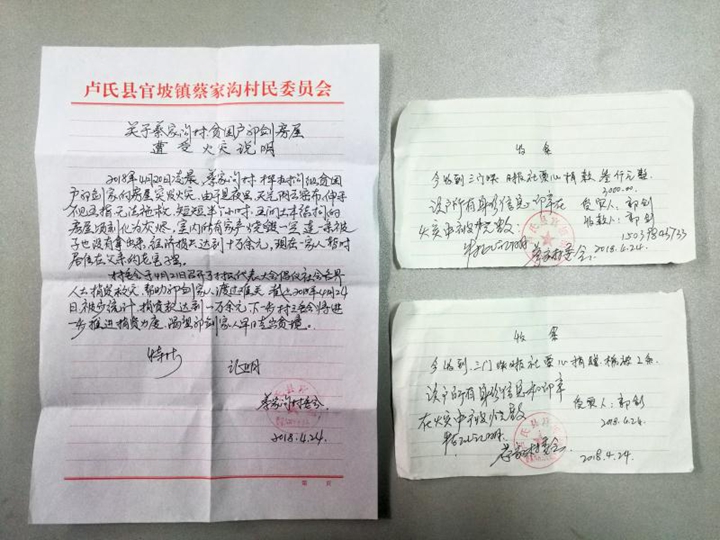 卢氏县官坡镇蔡家沟村民委员会
关于蔡家沟村贫困户郭剑房屋
遭受火灾说明
2018年4月20日凌晨，蔡家沟村 组贫困
户郭剑家的房屋突发火灾，由于是夜里，天光阴云密布，伸手
不见五指无法抢救，短短半个小时，五间土木结构的
房屋顷刻化为灰烬，室内所有家产烧毁一空，连一床被
子也没有拿出来，经济损失达到十万余元，现在一家人暂时
居住在父亲的老宅3间。
村委会于4月21日召开了村组代表大会倡议社会各界
人士捐资救灾，帮助郭剑家人渡过难关，截止2018年4月24
日，初步统计，捐资款达到一万余元，下一步村委会将进一
步推进捐资力度，渴望郭剑家人早日走出贫境。
特此
证明
蔡家沟村委会
2018.4.24
收条
今收到三门峡日报社爱心捐款叁仟元整
3000.00
该户所有身份信息和印章在 受灾人：郭剑
火灾中被烧毁 收款人：郭剑
特此证明 15039845733
蔡家村委会 2018.4.24.
收条
今收到三门峡日报社爱心捐赠棉被2条
该户所有身份信息和印章
在火灾中被烧毁 受灾人：郭剑
特此证明 2018.4.24
蔡家村委会 2018.4.24.